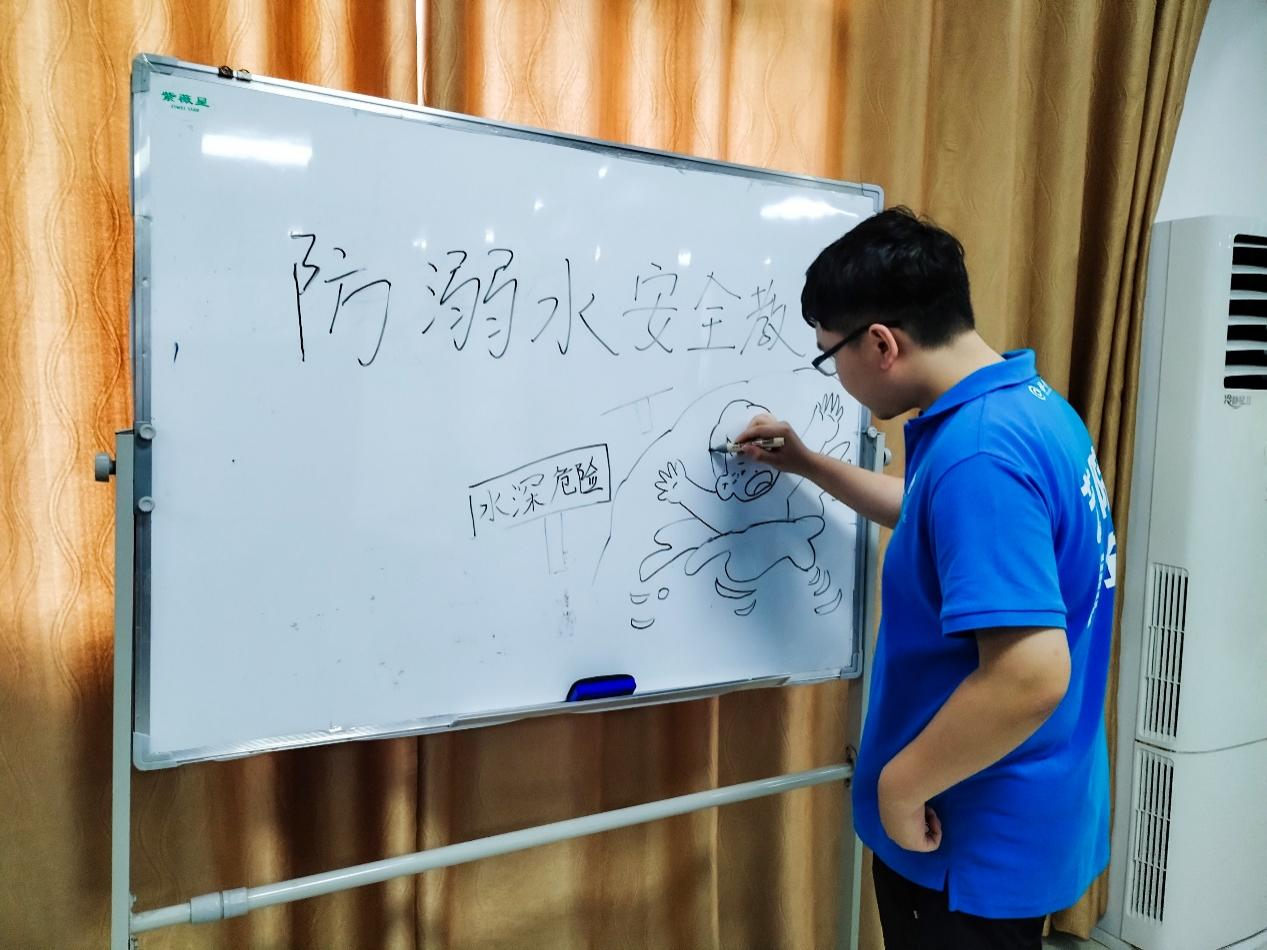 紫薇星
防溺水安全教
水深危险